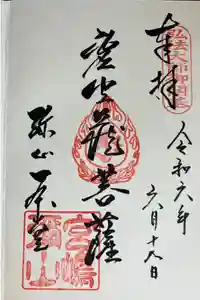 奉拝
令和六年
六月十九日
虚空蔵菩薩
弥山本堂
宮島
弥山